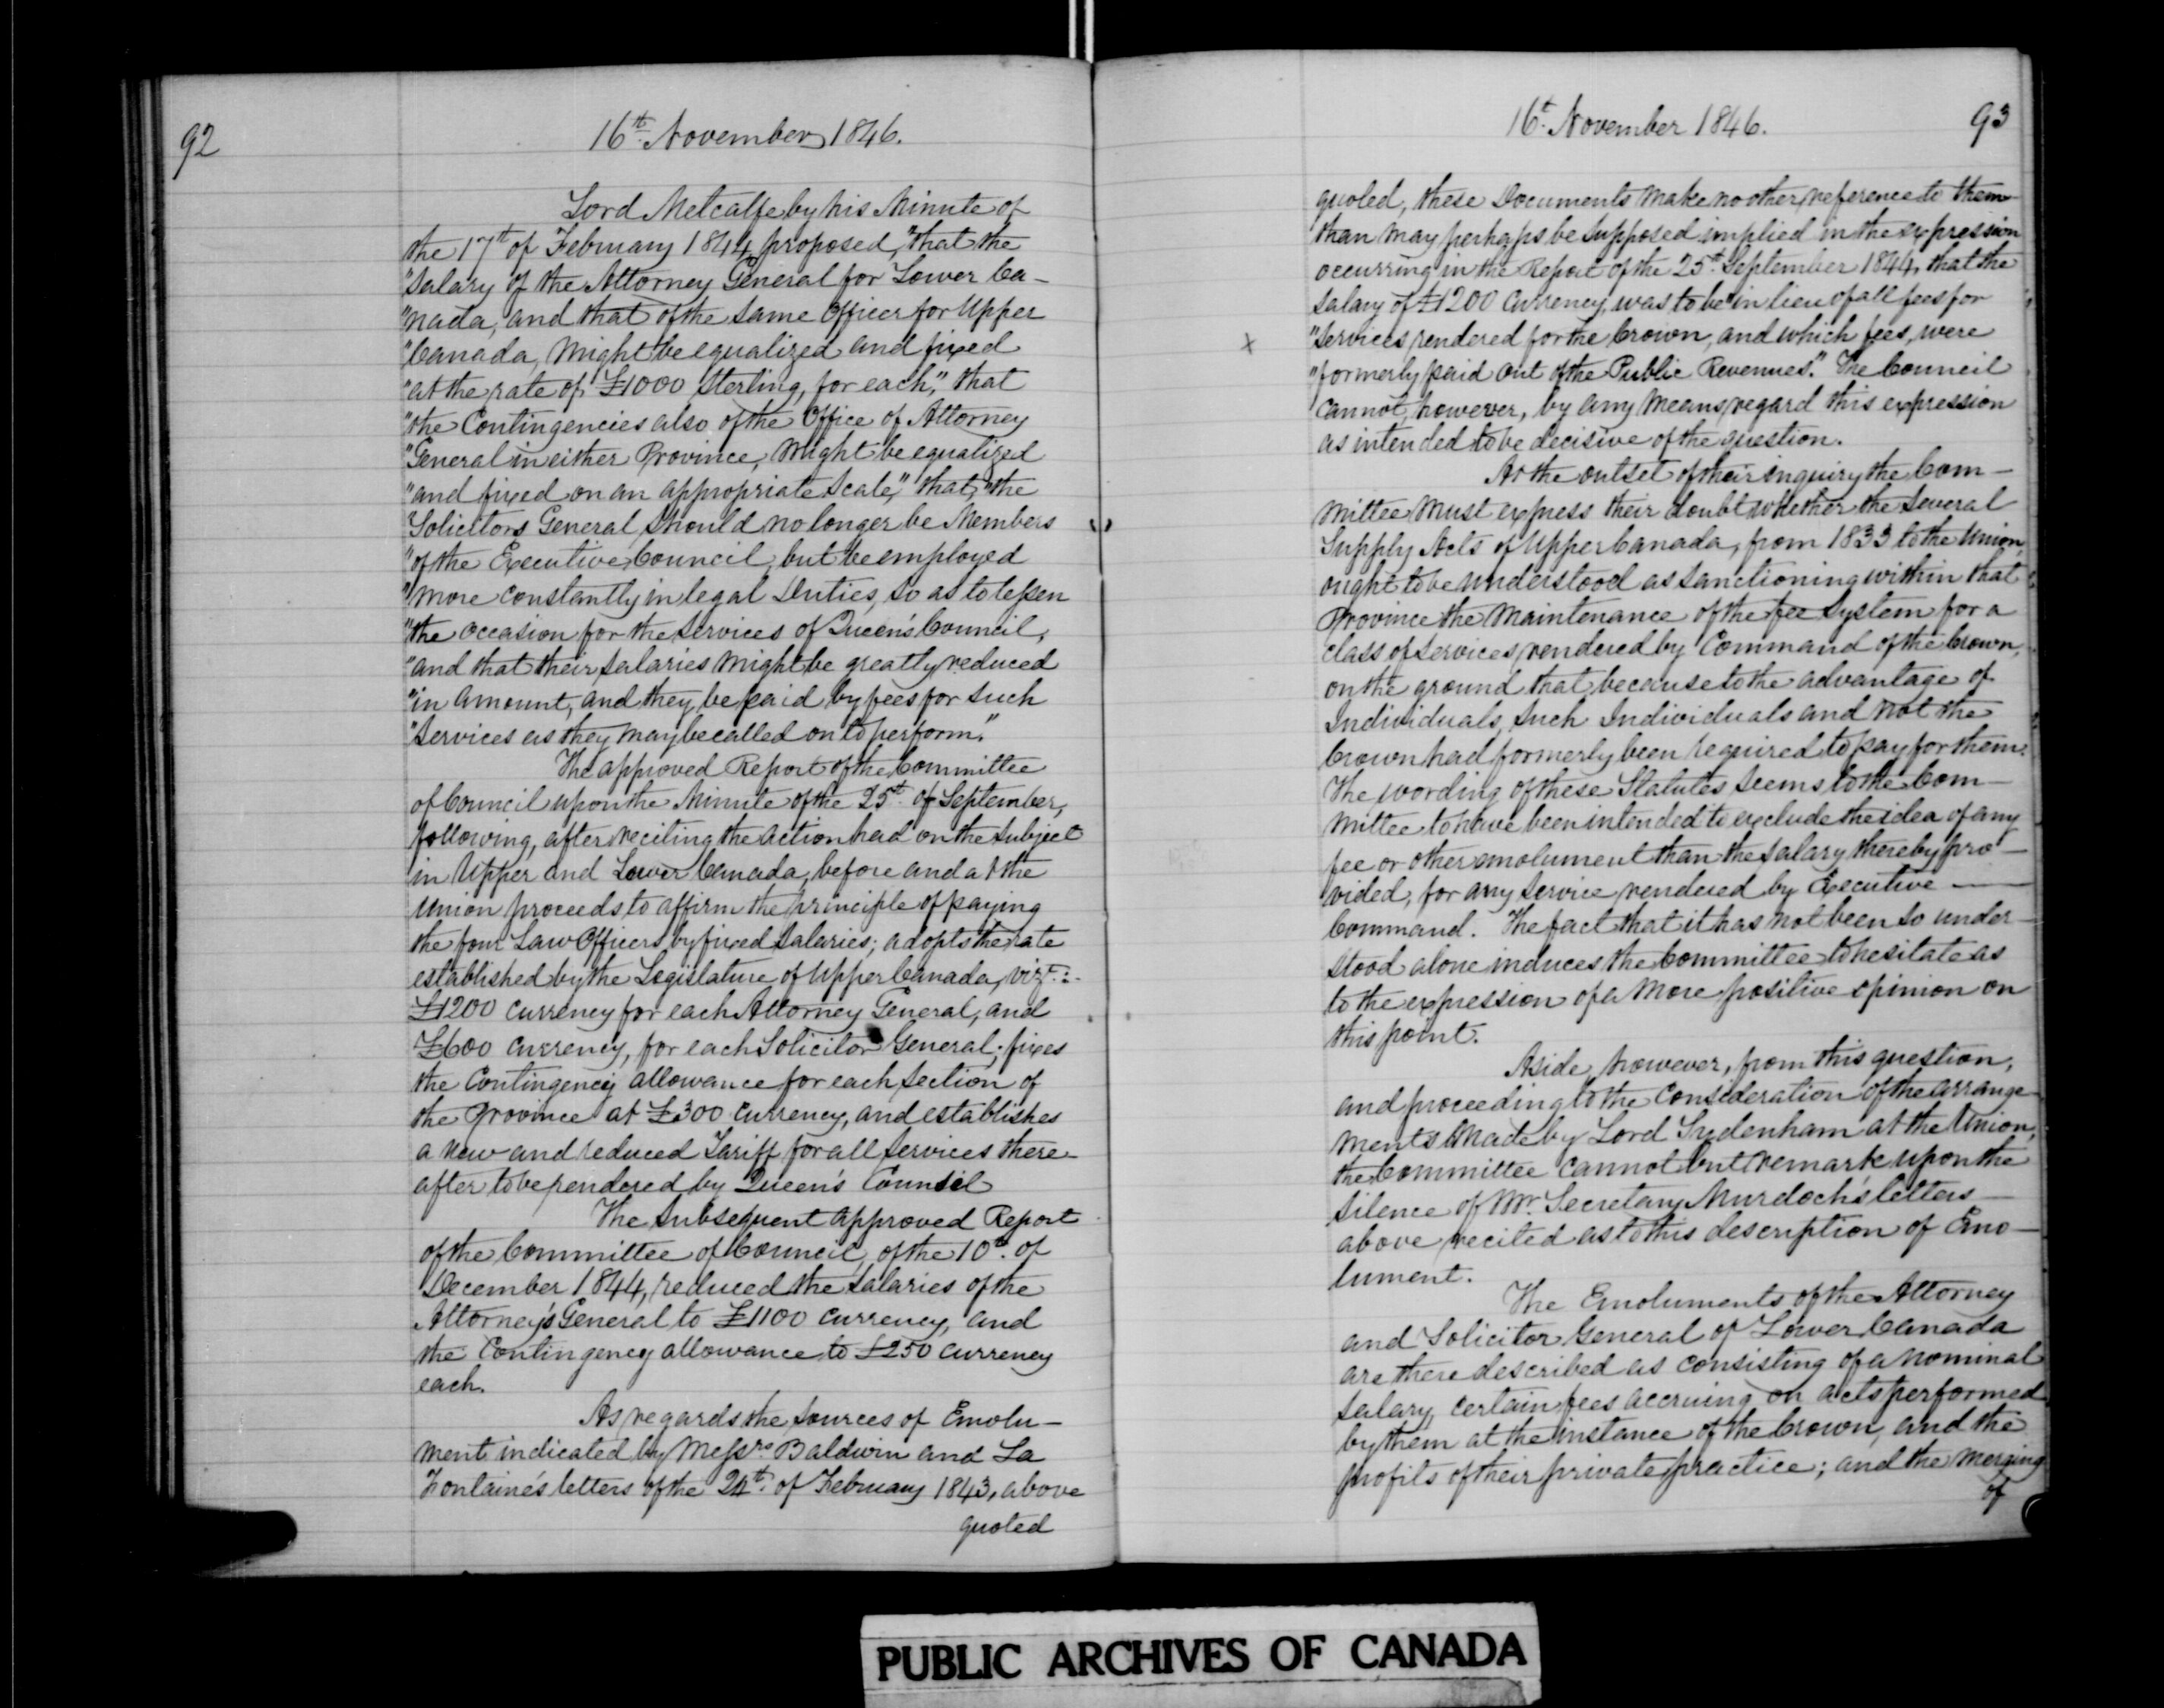 92
16th November 1846.
Lord Metcalfe by his Minute of
the 17th of February 1844, proposed, "that the
"Salary of the Attorney General for Lower Ca-
"nada, and that of the same Officer for Upper
"Canada, might be equalized and fixed
"at the rate of £1000 Sterling, for each," that
"the Contingencies also of the Office of Attorney
"General in either Province, might be equalized
"and fixed on an appropriate Scale," that, "the
"Solicitors General should no longer be Members
"of the Executive Council, but be employed
"more constantly in legal Duties, so as to lessen
"the occasion for the Services of Queen's Council,
"and that their salaries might be greatly reduced
"in amount, and they be paid by fees for such
"Services as they may be called on to perform."
The approved Report of the Committee
of Council upon the Minute of the 25th of September,
following, after reciting the action had on the subject
in Upper and Lower Canada, before and at the
Union proceeds to affirm the principle of paying
the four Law Officers by fixed Salaries; adopts the rate
established by the Legislature of Upper Canada, vizt:-
£1200 currency for each Attorney General, and
£600 currency, for each Solicitor General; fixes
the Contingency allowance for each Section of
the Province at £300 currency, and establishes
a new and reduced Tariff for all Services there-
after to be rendered by Queen's Counsel
The Subsequent approved Report
of the Committee of Council, of the 10th of
December 1844, reduced the Salaries of the
Attorney's General to £1100 currency, and
the Contingency allowance to £250 currency
each.
As regards the sources of Emolu-
ment indicated by Messrs Baldwin and La
Fontaine's letters of the 24th of February 1843, above
quoted
16t. November 1846.
93
quoted, these Documents make no other reference to them
than may perhaps be supposed implied in the expression
occurring in the Report of the 25th September 1844, that the
Salary of £1200 Currency, was to be "in lieu of all fees for
"Services rendered for the Crown, and which fees, were
"formerly paid out of the Public Revenues." The Council
x
cannot, however, by any means regard this expression
as intended to be decisive of the question.
At the outset of their inquiry the Com-
mittee must express their doubt whether the several
Supply Acts of Upper Canada, from 1833 to the Union,
ought to be understood as sanctioning within that
Province the Maintenance of the fee System for a
class of Services rendered by Command of the Crown,
on the ground that because to the advantage of
Individuals, such Individuals and not the
Crown had formerly been required to pay for them.
The wording of these Statutes seems to the Com-
mittee to have been intended to exclude the idea of any
fee or other emolument than the salary thereby pro-
vided, for any Service rendered by Executive —
Command. The fact that it has not been so under-
stood alone induces the Committee to hesitate as
to the expression of a more positive opinion on
this point.
Aside, however, from this question,
and proceeding to the Consideration of the arrange-
ments made by Lord Sydenham at the Union,
the Committee cannot but remark upon the
silence of Mr. Secretary Murdoch's letters —
above recited as to this description of Emo-
lument.
The Emoluments of the Attorney
and Solicitor General of Lower Canada
are there described as consisting of a nominal
Salary, certain fees accruing on acts performed
by them at the instance of the Crown, and the
profits of their private practice; and the merging
of
PUBLIC ARCHIVES OF CANADA